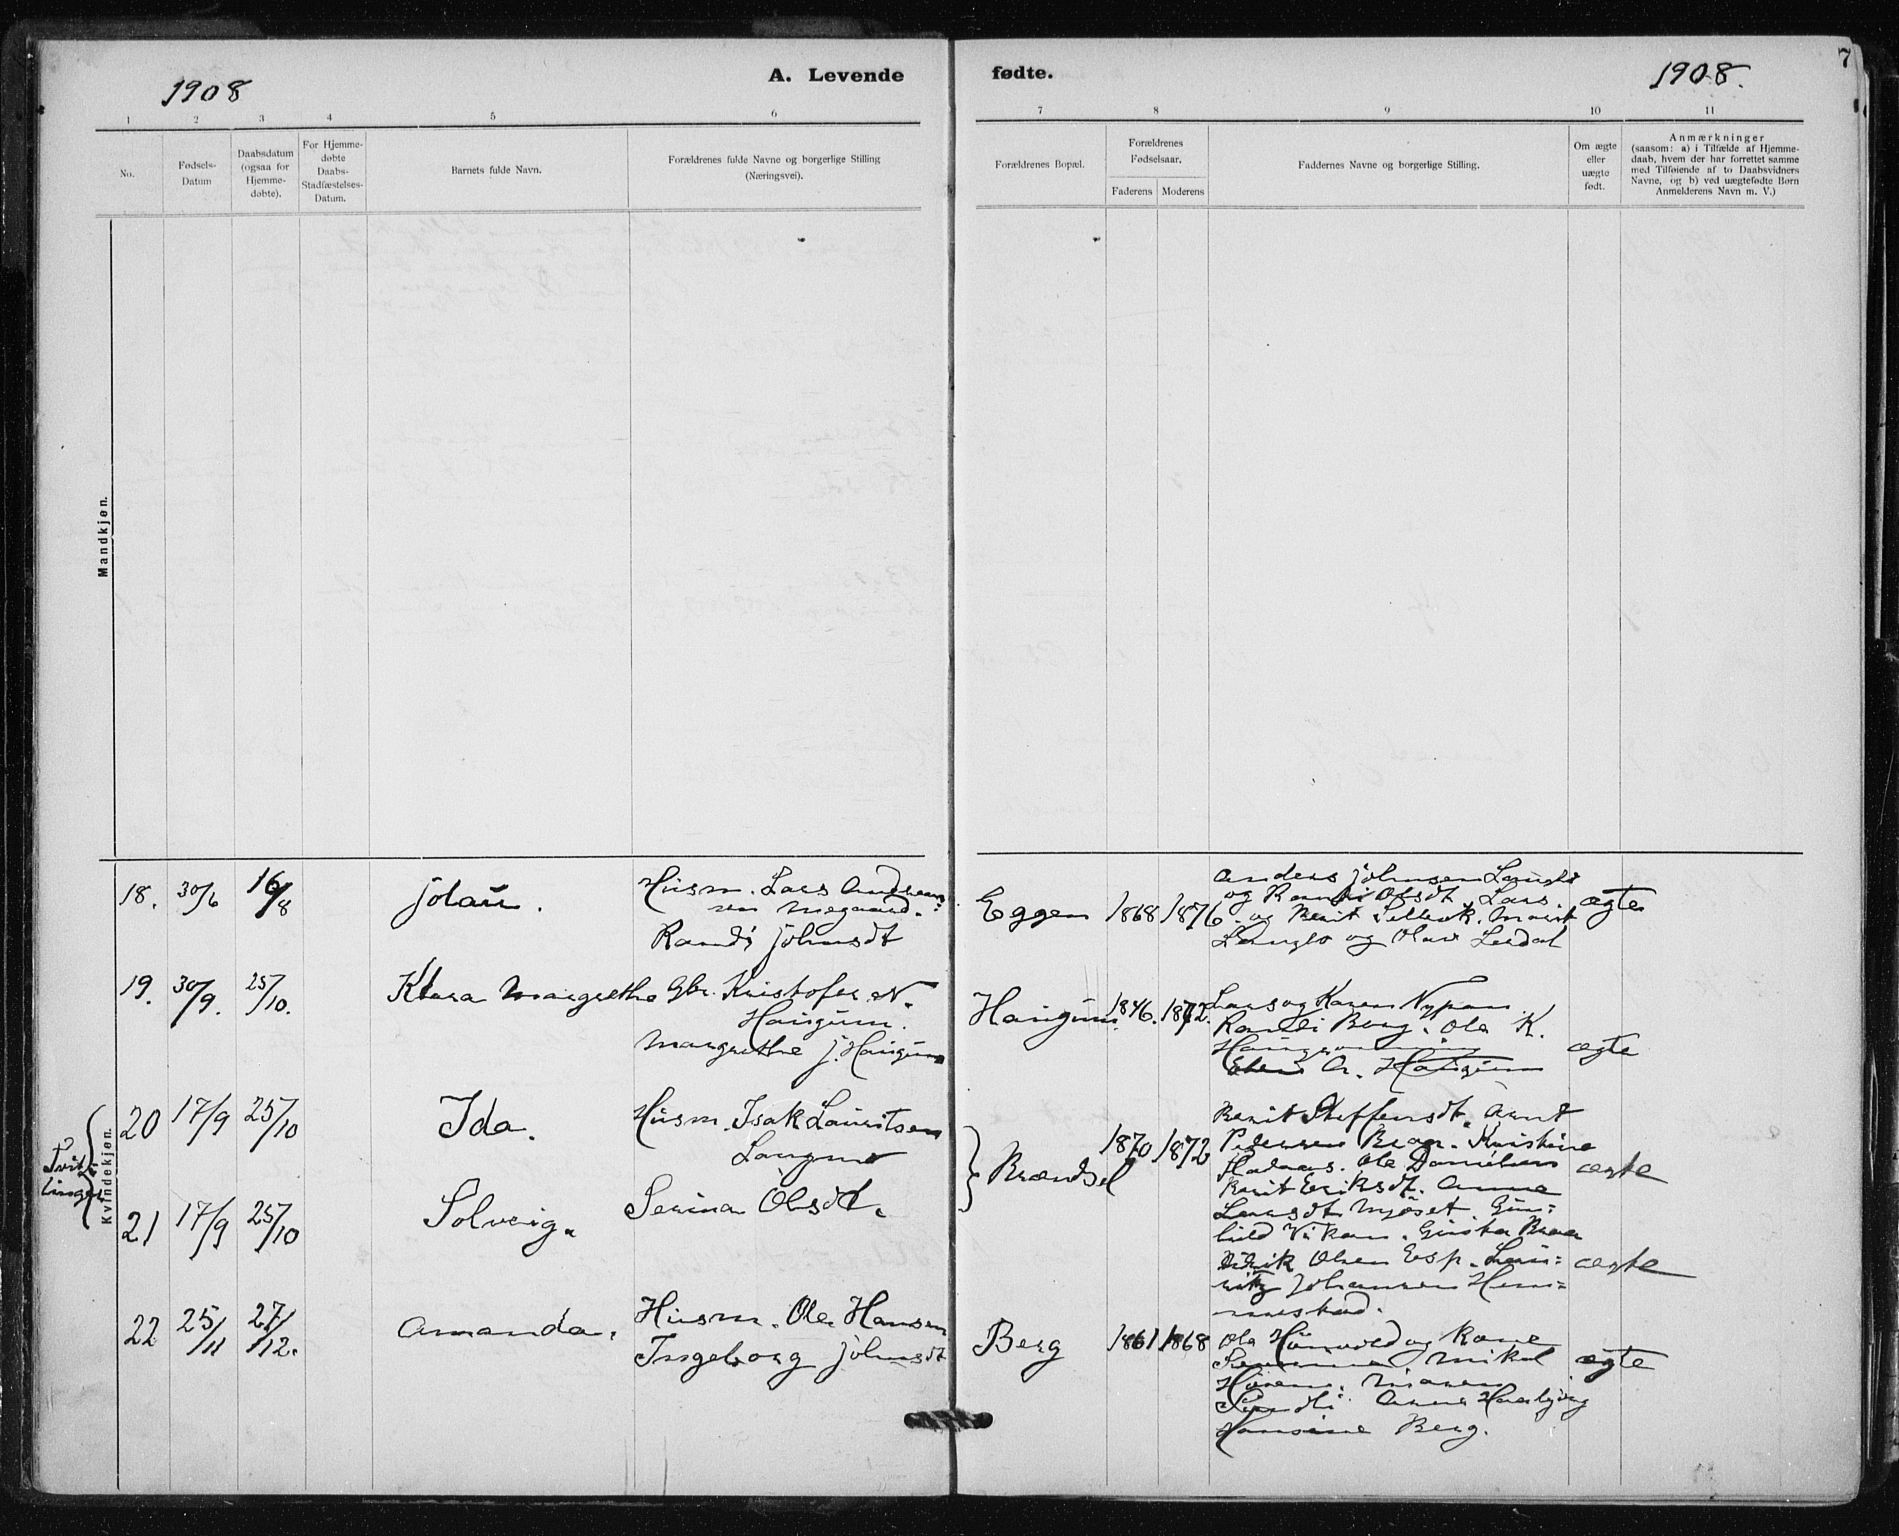 1908
A. Levende
fødte.
1908.
7
1 2 3 4 5 6
7 8 9 10 11
No.
Fødsels-
Datum
Daabsdatum
(ogsaa for
Hjemme-
døbte).
For Hjemme-
døbte
Daabs-
Stadfæstelses-
Datum.
Barnets fulde Navn.
Forældrenes fulde Navne og borgerlige Stilling
(Næringsvei).
Forældrenes Bopæl.
Forældrenes
Fødselsaar.
Faderens Moderens
Faddernes Navne og borgerlige Stilling.
Om ægte
eller
uægte
født.
Anmærkninger
(saasom: a) i Tilfælde af Hjemme-
daab, hvem der har forrettet samme
med Tilføiende af to Daabsvidners
Navne, og b) ved uægtefødte Børn
Anmelderens Navn m. V.)
Mandkjøn.
Kvindekjøn.
18. 30/6 16/8 Jolau.
Husm. Lars Andrea-
sen Moegaard.
Randi Johnsdt
Eggen 1868 1876
Anders Johnsen Langlo
og Randi Olsdt. Lars
og Berit Selbæk. Marit
Langlo og Olav Leedal
ægte
19. 30/9. 25/10. Klara Margrethe
Gbr. Kristofer N.
Haugum.
Margrethe J. Haugum
Haugum. 1846. 1872.
Lars og Karen Nypan
Randi Berg. Ole K.
A. Haugum
ægte
Tvil
linger
20 17/9 25/10 Ida.
Husm. Isak Lauritsen
Langmo
21 17/9 25/10 Solveig.
Serina Olsdt.
Brændsel
1870 1872
Berit Steffensdt. Arnt
Pedersen Kristine
Halaas. Ole Danielsen
Berit Eriksdt. Anne
Larsdt Myøset. Gun-
hild Vikan.
ægte
Didrik Olsen Esp. Lau-
ritz Johansen Hem-
mestad.
ægte
22 25/11 27/12. Amanda.
Husm. Ole Hansen
Ingeborg Johnsdt
Berg 1861 1868
Ole og Kane
Mikal
Maren
Anne
Hansine Berg.
ægte